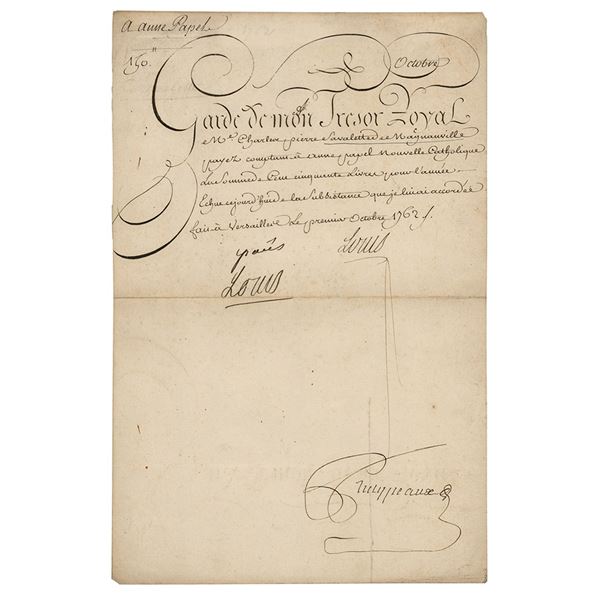 A anne Papel
150.ᵗᵗ
Octobre
Garde de mon Tresor Royal
Mᵉ Charles pierre Savalette de Magnanville
payez comptant à anne papel Nouvelle Catholique
La Somme de Cent cinquante Livres pour l'année
Echue cejourd'huy de la Subsistance que je lui ai accordée
fait à Versailles Le premier Octobre 1762 /.
Louis
payés
Louis
Phelypeaux